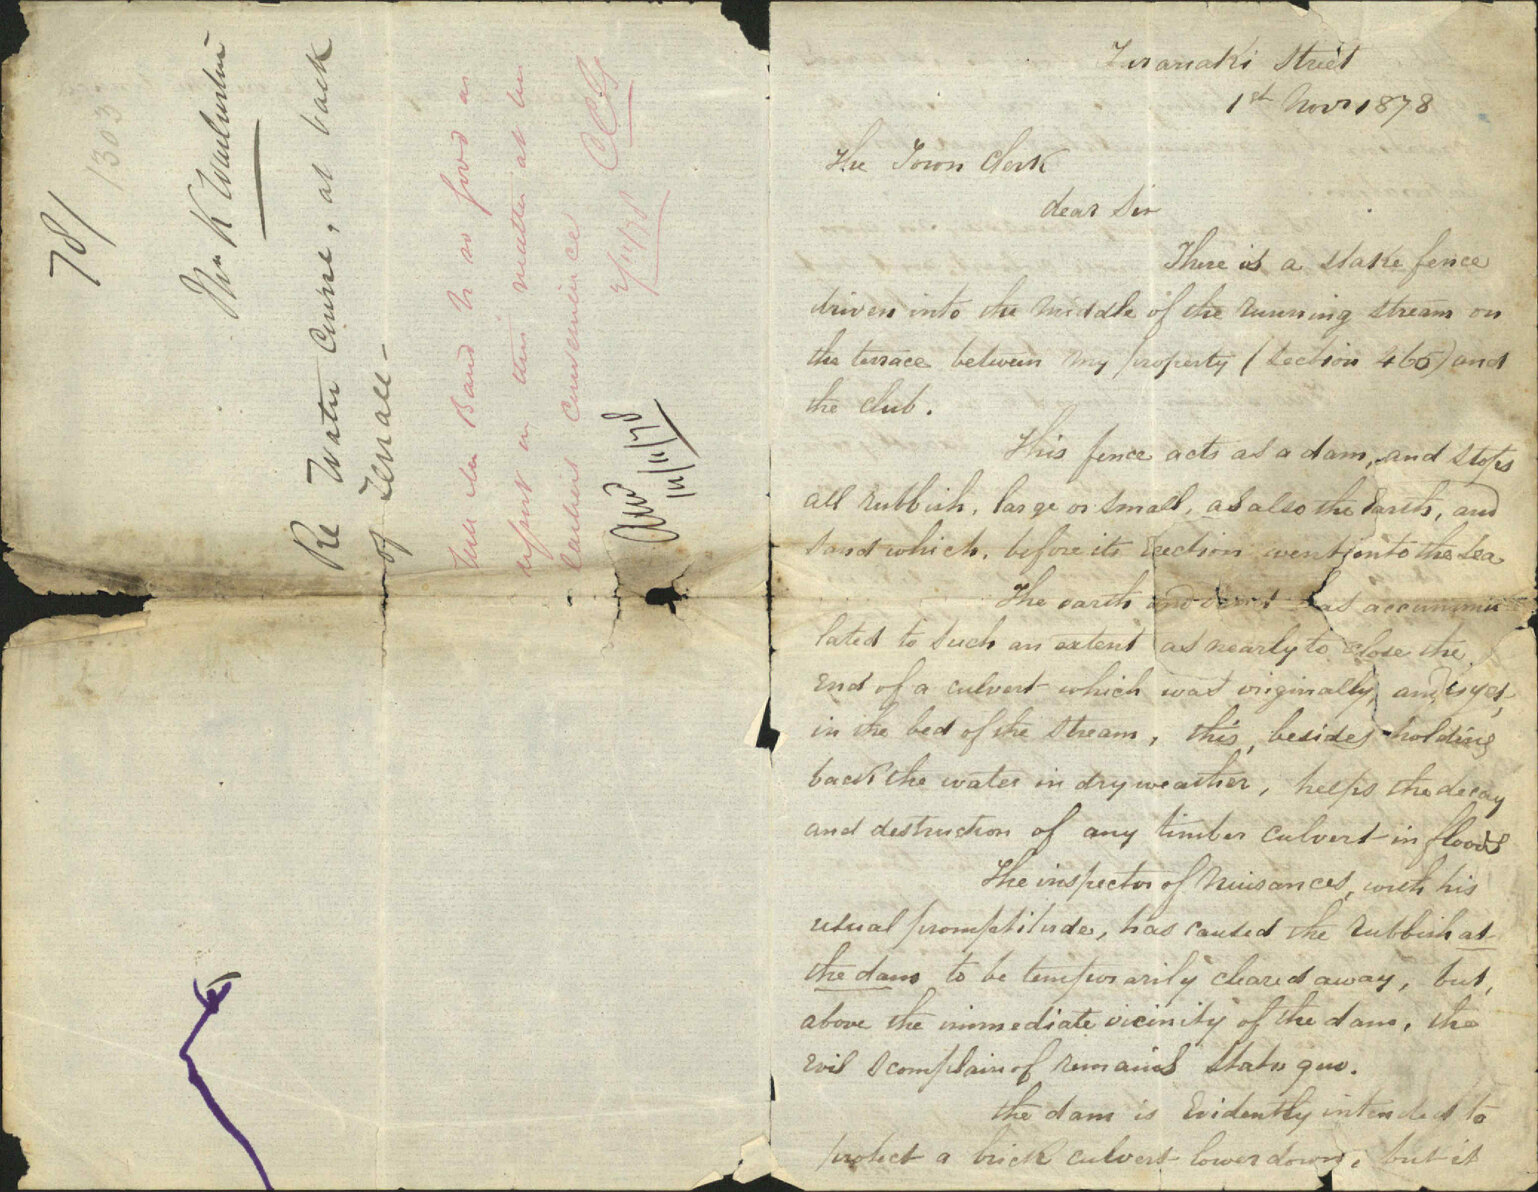 78/
1303
Mr K
Re Water Course, at back
of Terrace –
Will the Band be so good as
report on this matter at his
earliest convenience
CCG
5/11/78
14/11/78
Taranaki Street
1st Novr 1878
The Town Clerk
dear Sir
There is a stake fence
driven into the middle of the running stream on
the terrace between my property (Section 466) and
the club.
This fence acts as a dam, and stops
all rubbish, large or small, as also the Earth, and
sand which, before its Erection went into the sea
The earth and has accummu
lated to such an extent as nearly to close the
End of a culvert which was originally, and is yet,
in the bed of the stream, this, besides holding
back the water in dry weather, helps the decay
and destruction of any timber culvert in floods
The inspector of Nuisances, with his
usual promptitude, has caused the rubbish at
the dam to be temporarily cleared away, but,
above the immediate vicinity of the dam, the
Evil I complain of remains statu quo.
the dam is Evidently intended to
protect a brick culvert lower down, but it